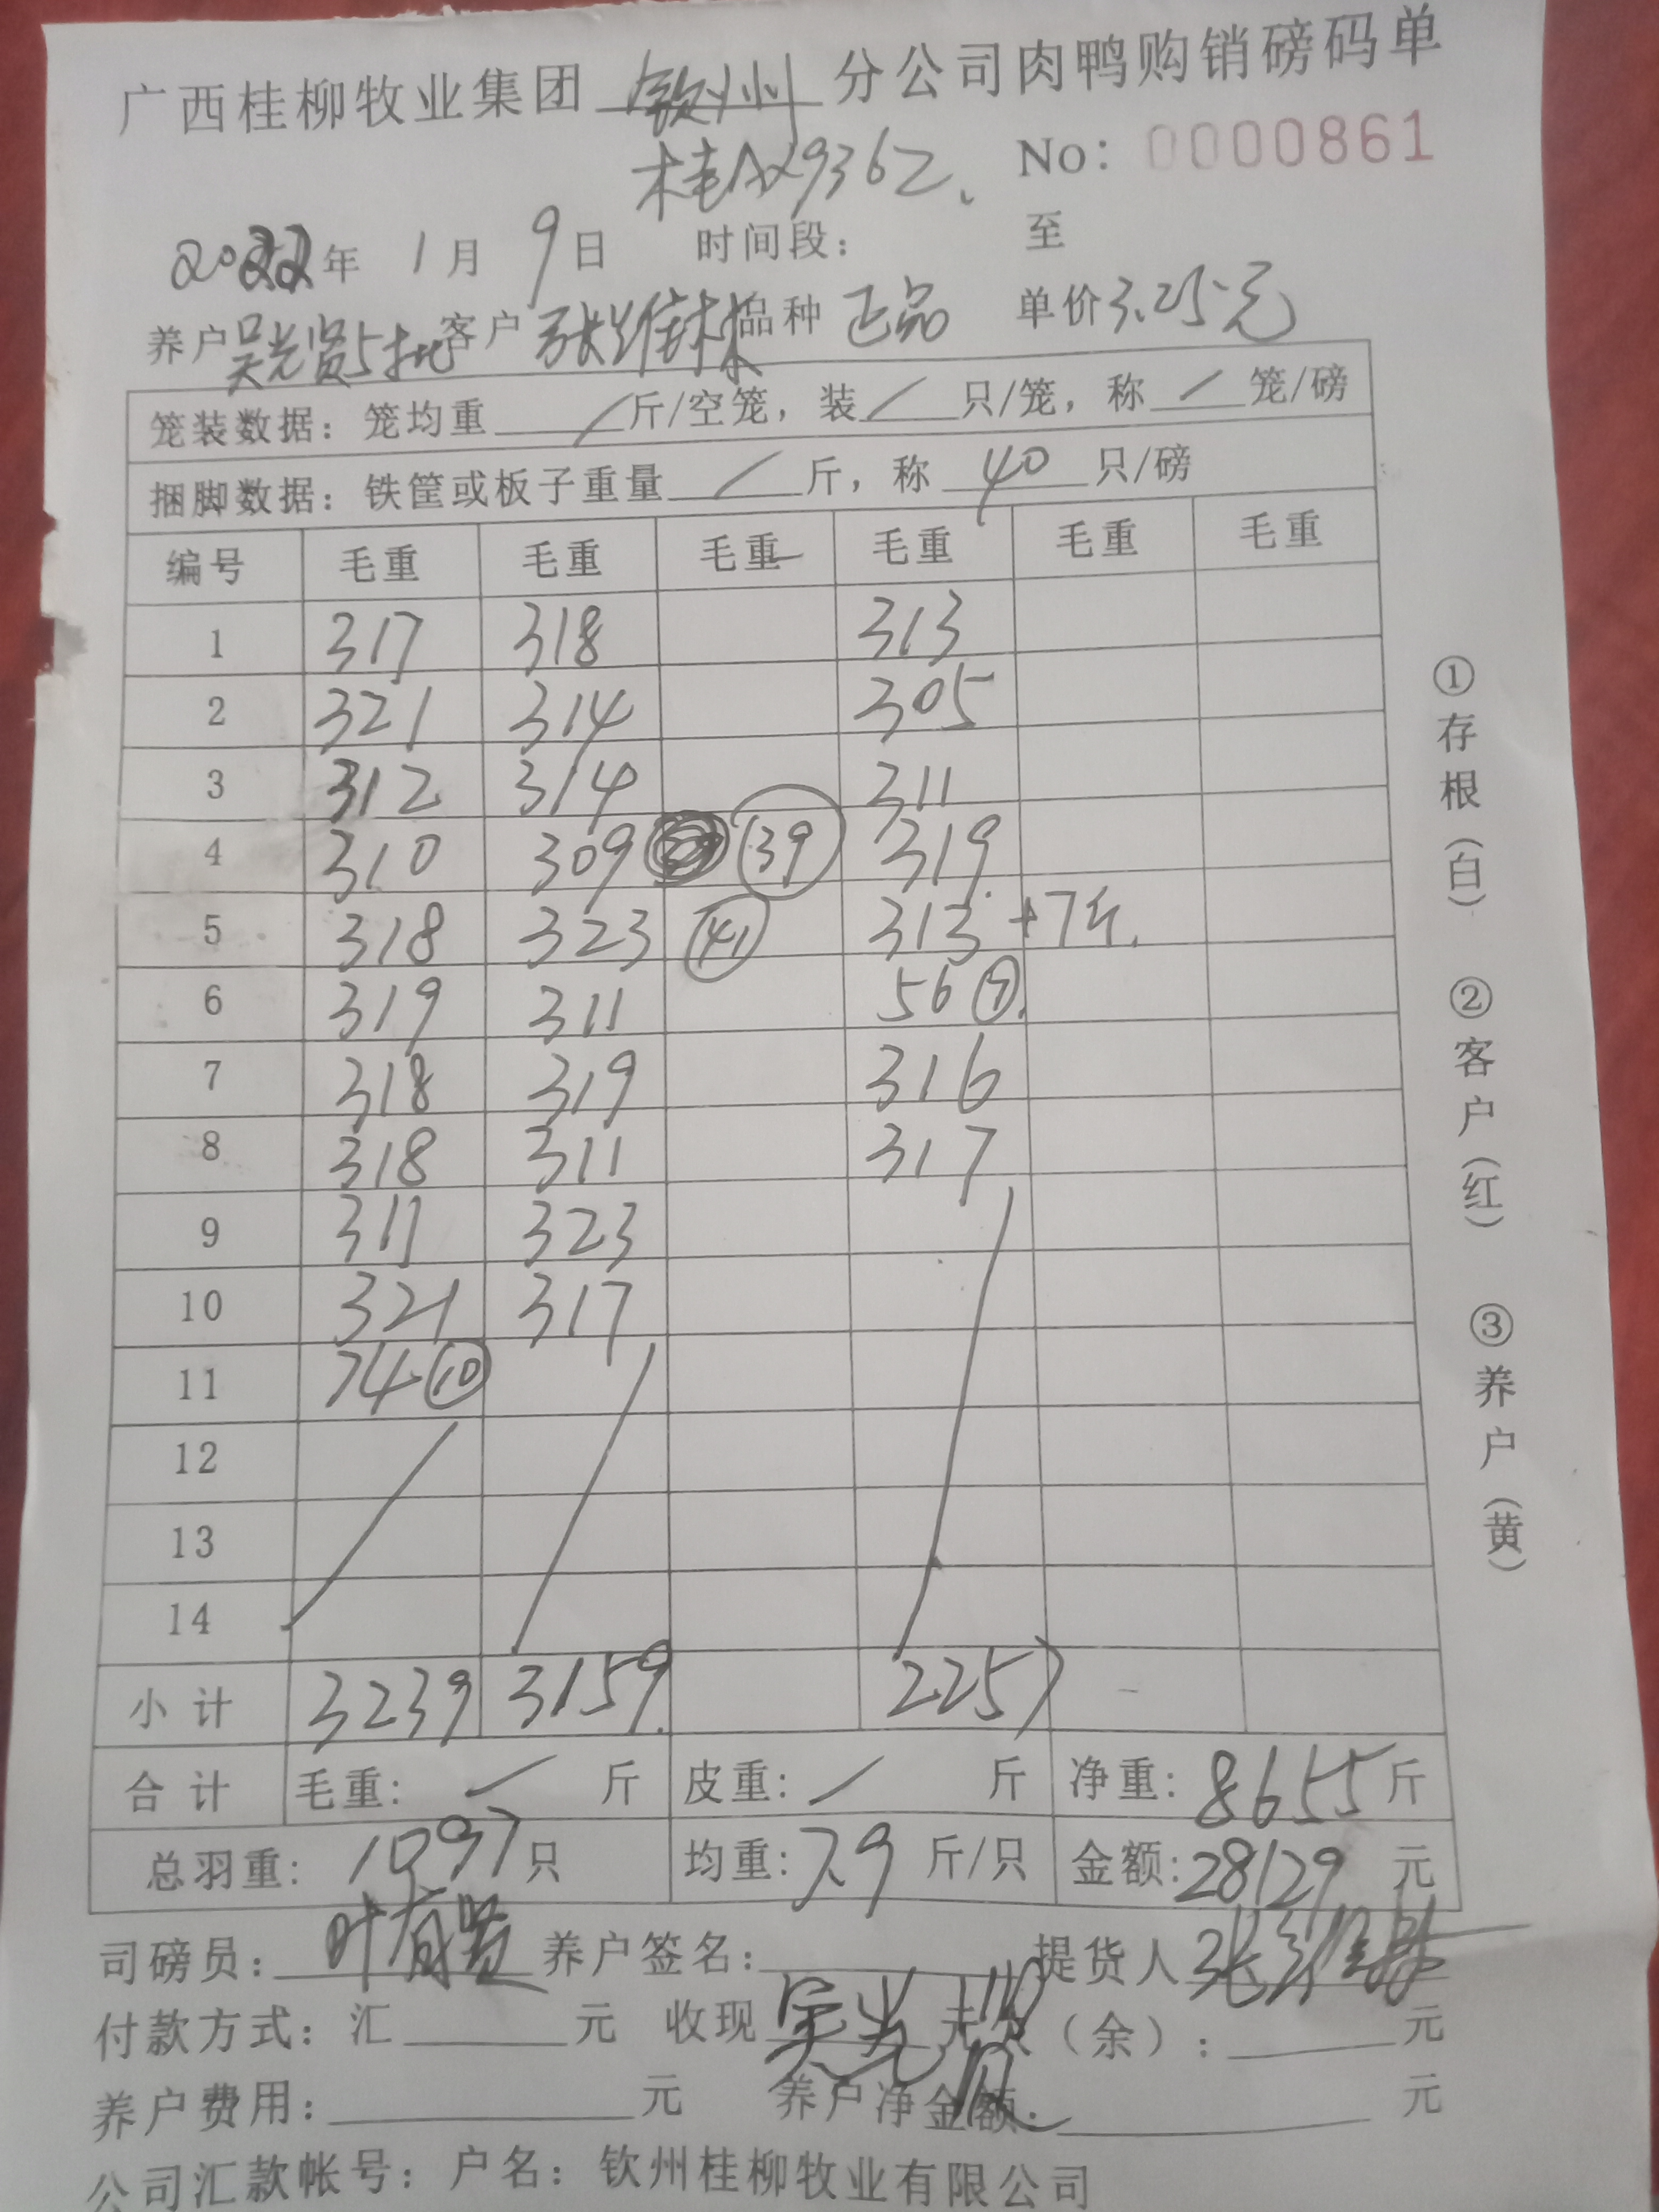 广西桂柳牧业集团 钦州 分公司肉鸭购销磅码单
桂AX9362、 No: 0000861
2022年 1月 9日 时间段： 至
养户 吴光贤5批 客户 张维林 品种 正品 单价 3.25元
笼装数据：笼均重 / 斤/空笼，装 / 只/笼，称 / 笼/磅
捆脚数据：铁筐或板子重量 / 斤，称 40 只/磅
编号 毛重 毛重 毛重 毛重 毛重 毛重
1 317 318 313
2 321 314 305
3 312 314 311
4 310 309 39 319
5 318 323 41 313 +7斤.
6 319 311 56 7
7 318 319 316
8 318 311 317
9 311 323
10 321 317
11 74 10
12
13
14
小计 3239 3159 2257
合计 毛重: / 斤 皮重: / 斤 净重: 8655 斤
总羽重: 1097 只 均重: 7.9 斤/只 金额: 28129 元
司磅员: 叶有 养户签名: 提货人 张维林
付款方式: 汇 元 收现 吴光 元 （余）: 元
养户费用: 元 养户净金额: 元
公司汇款帐号：户名：钦州桂柳牧业有限公司
①存根（白） ②客户（红） ③养户（黄）